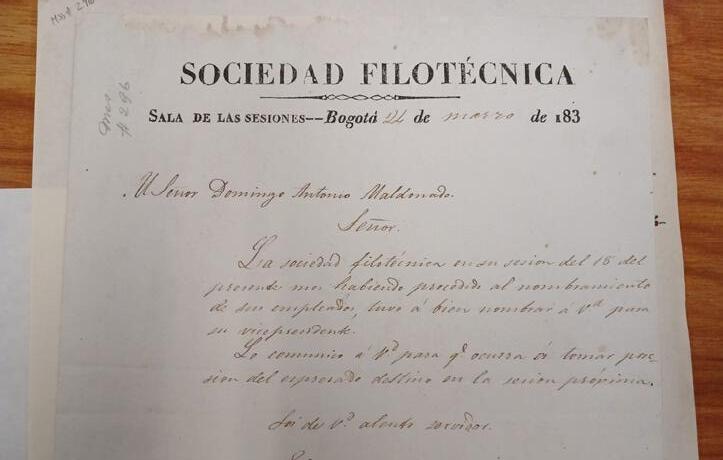 Mss # 296
SOCIEDAD FILOTÉCNICA
Mss # 296
SALA DE LAS SESIONES--Bogotá 24 de marzo de 183
Al Señor Domingo Antonio Maldonado.
Señor.
La sociedad filotécnica en su sesion del 18 del
presente mes habiendo procedido al nombramiento
de sus empleados, tuvo á bien nombrar á Vd para
su vicepresidente.
Lo comunico á Vd para qe ocurra á tomar pose-
sion del espresado destino en la secion próxima.
Soi de Vd atento servidor.